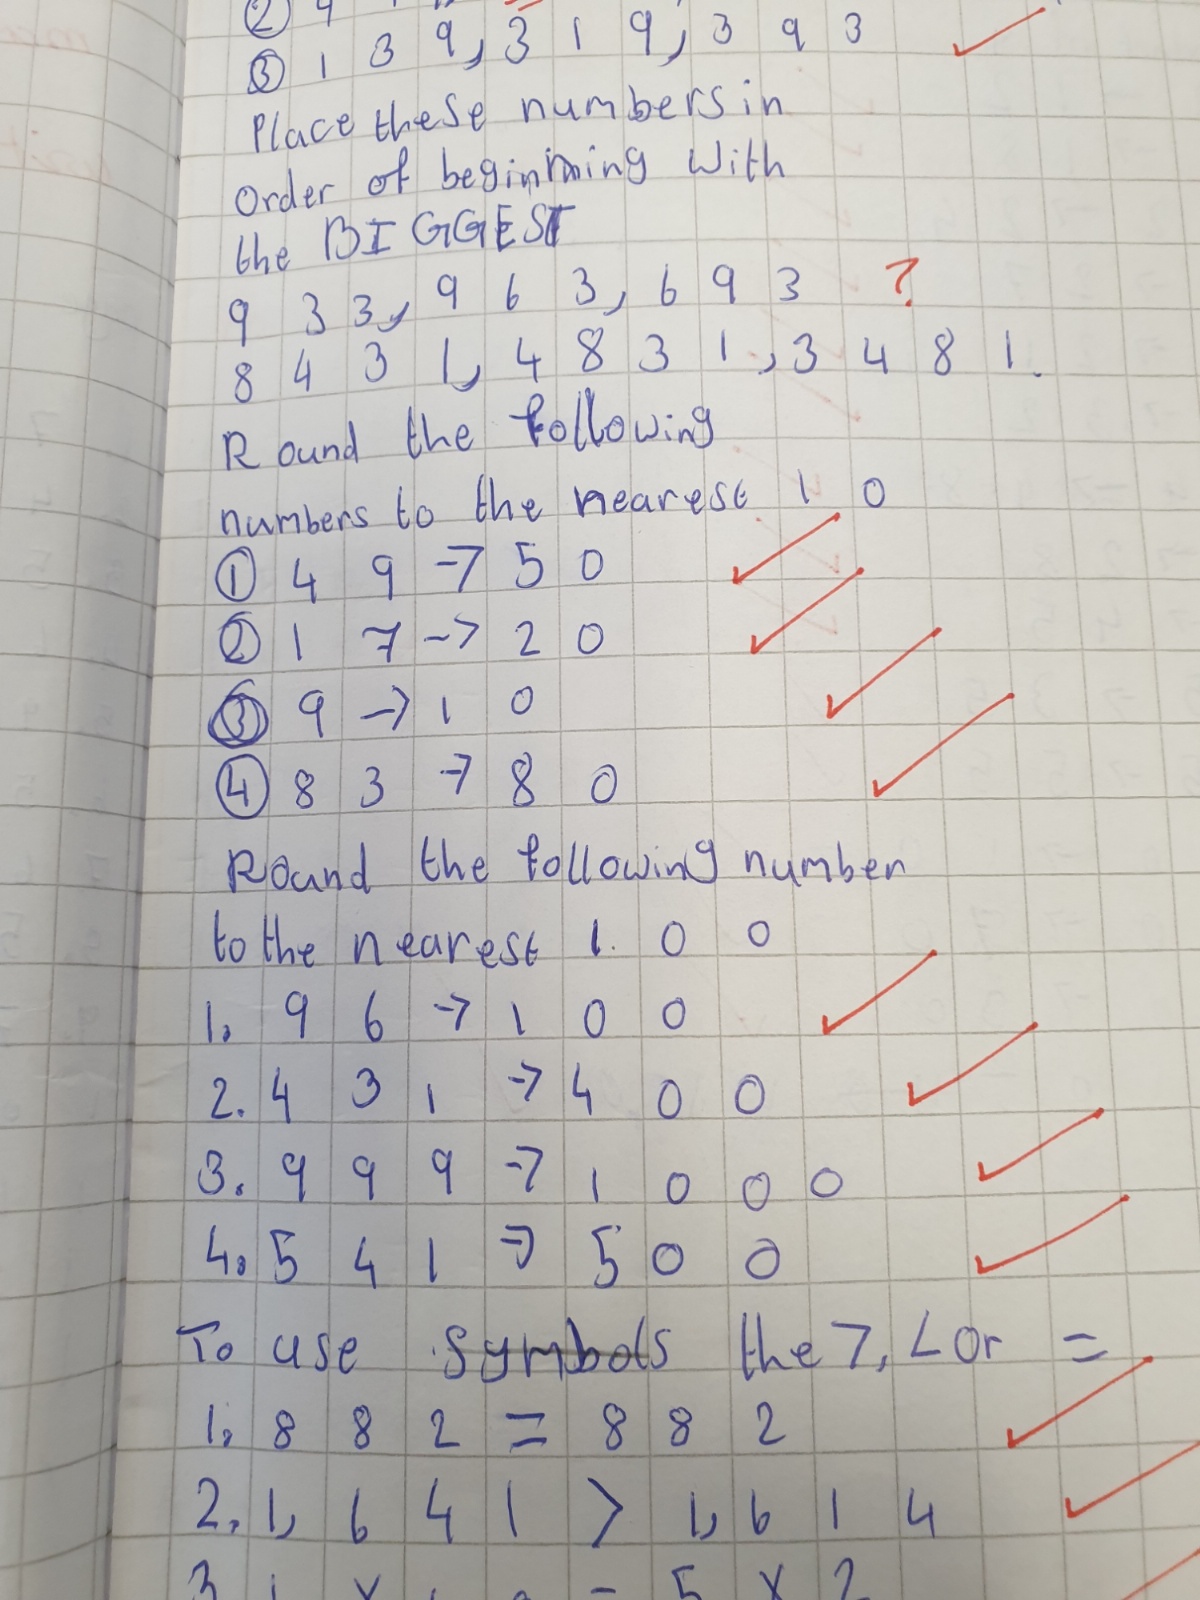 ③ 1 3 9, 3 1 9, 3 9 3
Place these numbers in
order of beginning with
the BIGGEST
9 3 3, 9 6 3, 6 9 3 ?
8 4 3 1, 4 8 3 1, 3 4 8 1.
Round the following
numbers to the nearest 1 0
① 4 9 → 5 0
② 1 7 → 2 0
③ 9 → 1 0
④ 8 3 → 8 0
Round the following number
to the nearest 1 0 0
1. 9 6 → 1 0 0
2. 4 3 1 → 4 0 0
3. 9 9 9 → 1 0 0 0
4. 5 4 1 → 5 0 0
To use symbols the >, < or =
1. 8 8 2 = 8 8 2
2. 1, 6 4 1 > 1, 6 1 4